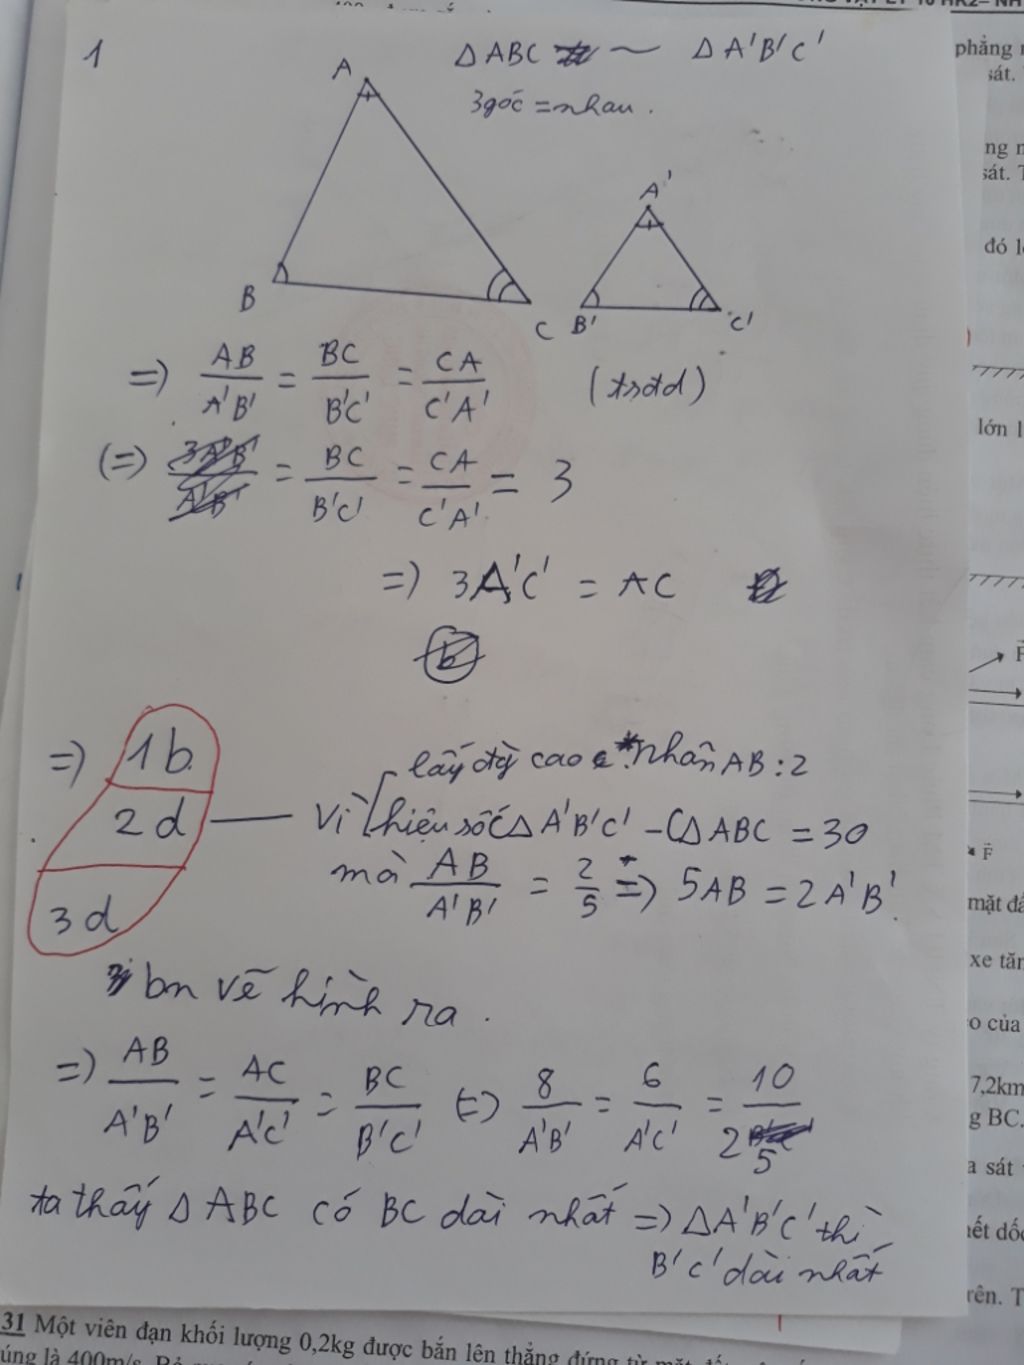 1
ΔABC ~ ΔA'B'C'
3góc = nhau.
A
B
C
A'
B'
C'
=> AB/A'B' = BC/B'C' = CA/C'A' (tsđd)
(=) 3A'B'/A'B' = BC/B'C' = CA/C'A' = 3
=> 3A'C' = AC
b
=> 1b.
lấy đg cao nhân AB:2
2d — Vì hiệu số CΔA'B'C' - CΔABC = 30
mà AB/A'B' = 2/5 => 5AB = 2A'B'.
3d
bn vẽ hình ra.
=> AB/A'B' = AC/A'C' = BC/B'C' (=) 8/A'B' = 6/A'C' = 10/25
ta thấy ΔABC có BC dài nhất => ΔA'B'C' thì
B'C' dài nhất
phẳng
sát.
sát.
đó
lớn
F
F
mặt
xe
của
7,2km
BC.
sát
dốc
31 Một viên đạn khối lượng 0,2kg được bắn lên thẳng đứng từ mặt
là 400m/s.